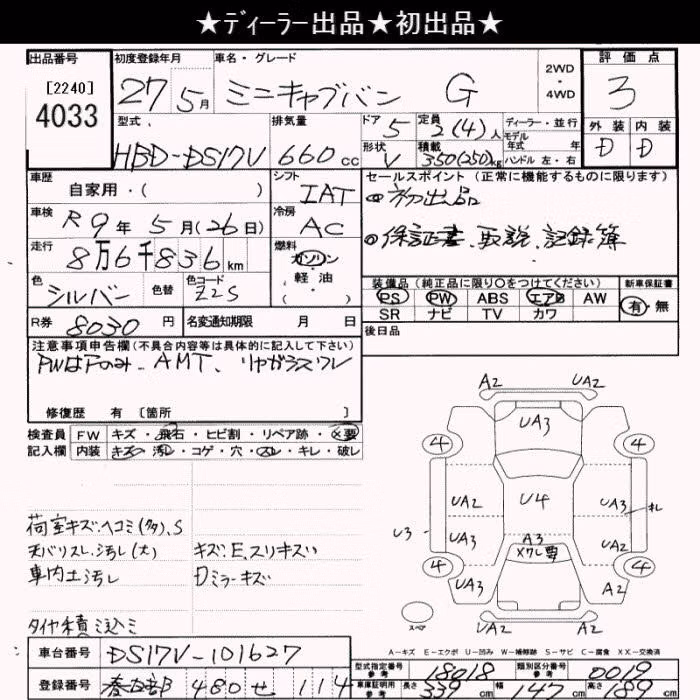 ★ディーラー出品★初出品★
出品番号 [2240] 4033
初度登録年月 27年 5月
車名・グレード ミニキャブバン G
2WD・4WD
評価点 3
型式 HBD-DS17V
排気量 660cc
ドア 5
形状 V
定員 2(4)人
積載 350(250)kg
ディーラー・並行
モデル年式 年
ハンドル 左・右
外装 D 内装 D
車歴 自家用・( )
シフト IAT
セールスポイント(正常に機能するものに限ります)
初出品
保証書、取説、記録簿
車検 R9年 5月(26日)
冷房 AC
走行 8万6千836km
燃料 ガソリン 軽油 ( )
色 シルバー 色替
色コード Z2S
装備品(純正品に限り○をつけてください)
PS PW ABS エアB AW
SR ナビ TV カワ
新車保証書 有・無
R券 8030円
名変通知期限 月 日
後日品
注意事項申告欄(不具合内容等は具体的に記入して下さい)
PWはFのみ、AMT、リヤガラスワレ
修復歴 有 [箇所 ]
検査員記入欄
FW キズ・飛石・ヒビ割・リペア跡・X要
内装 キズ・汚れ・コゲ・穴・スレ・キレ・破レ
荷室キズ、ヘコミ(多)、S
天バリスレ、汚れ(大) キズ、E、スリキズい
車内土汚れ Dミラーキズ
タイヤ積ミ込ミ
A2 UA2
UA3
4 4
UA2 U4 UA3
U3
UA2 A3 Xワレ要 UA2
4 4
UA3 A2
スペア
UA2 UA2
A-キズ E-エクボ U-凹み W-補修跡 S-サビ C-腐食 XX-交換済
車台番号 DS17V-101627
型式指定番号 参考 18018
類別区分番号 参考 0019
登録番号 春日部 480 せ 114
車庫証明用 参考 長さ 339cm 幅 147cm 高さ 189cm